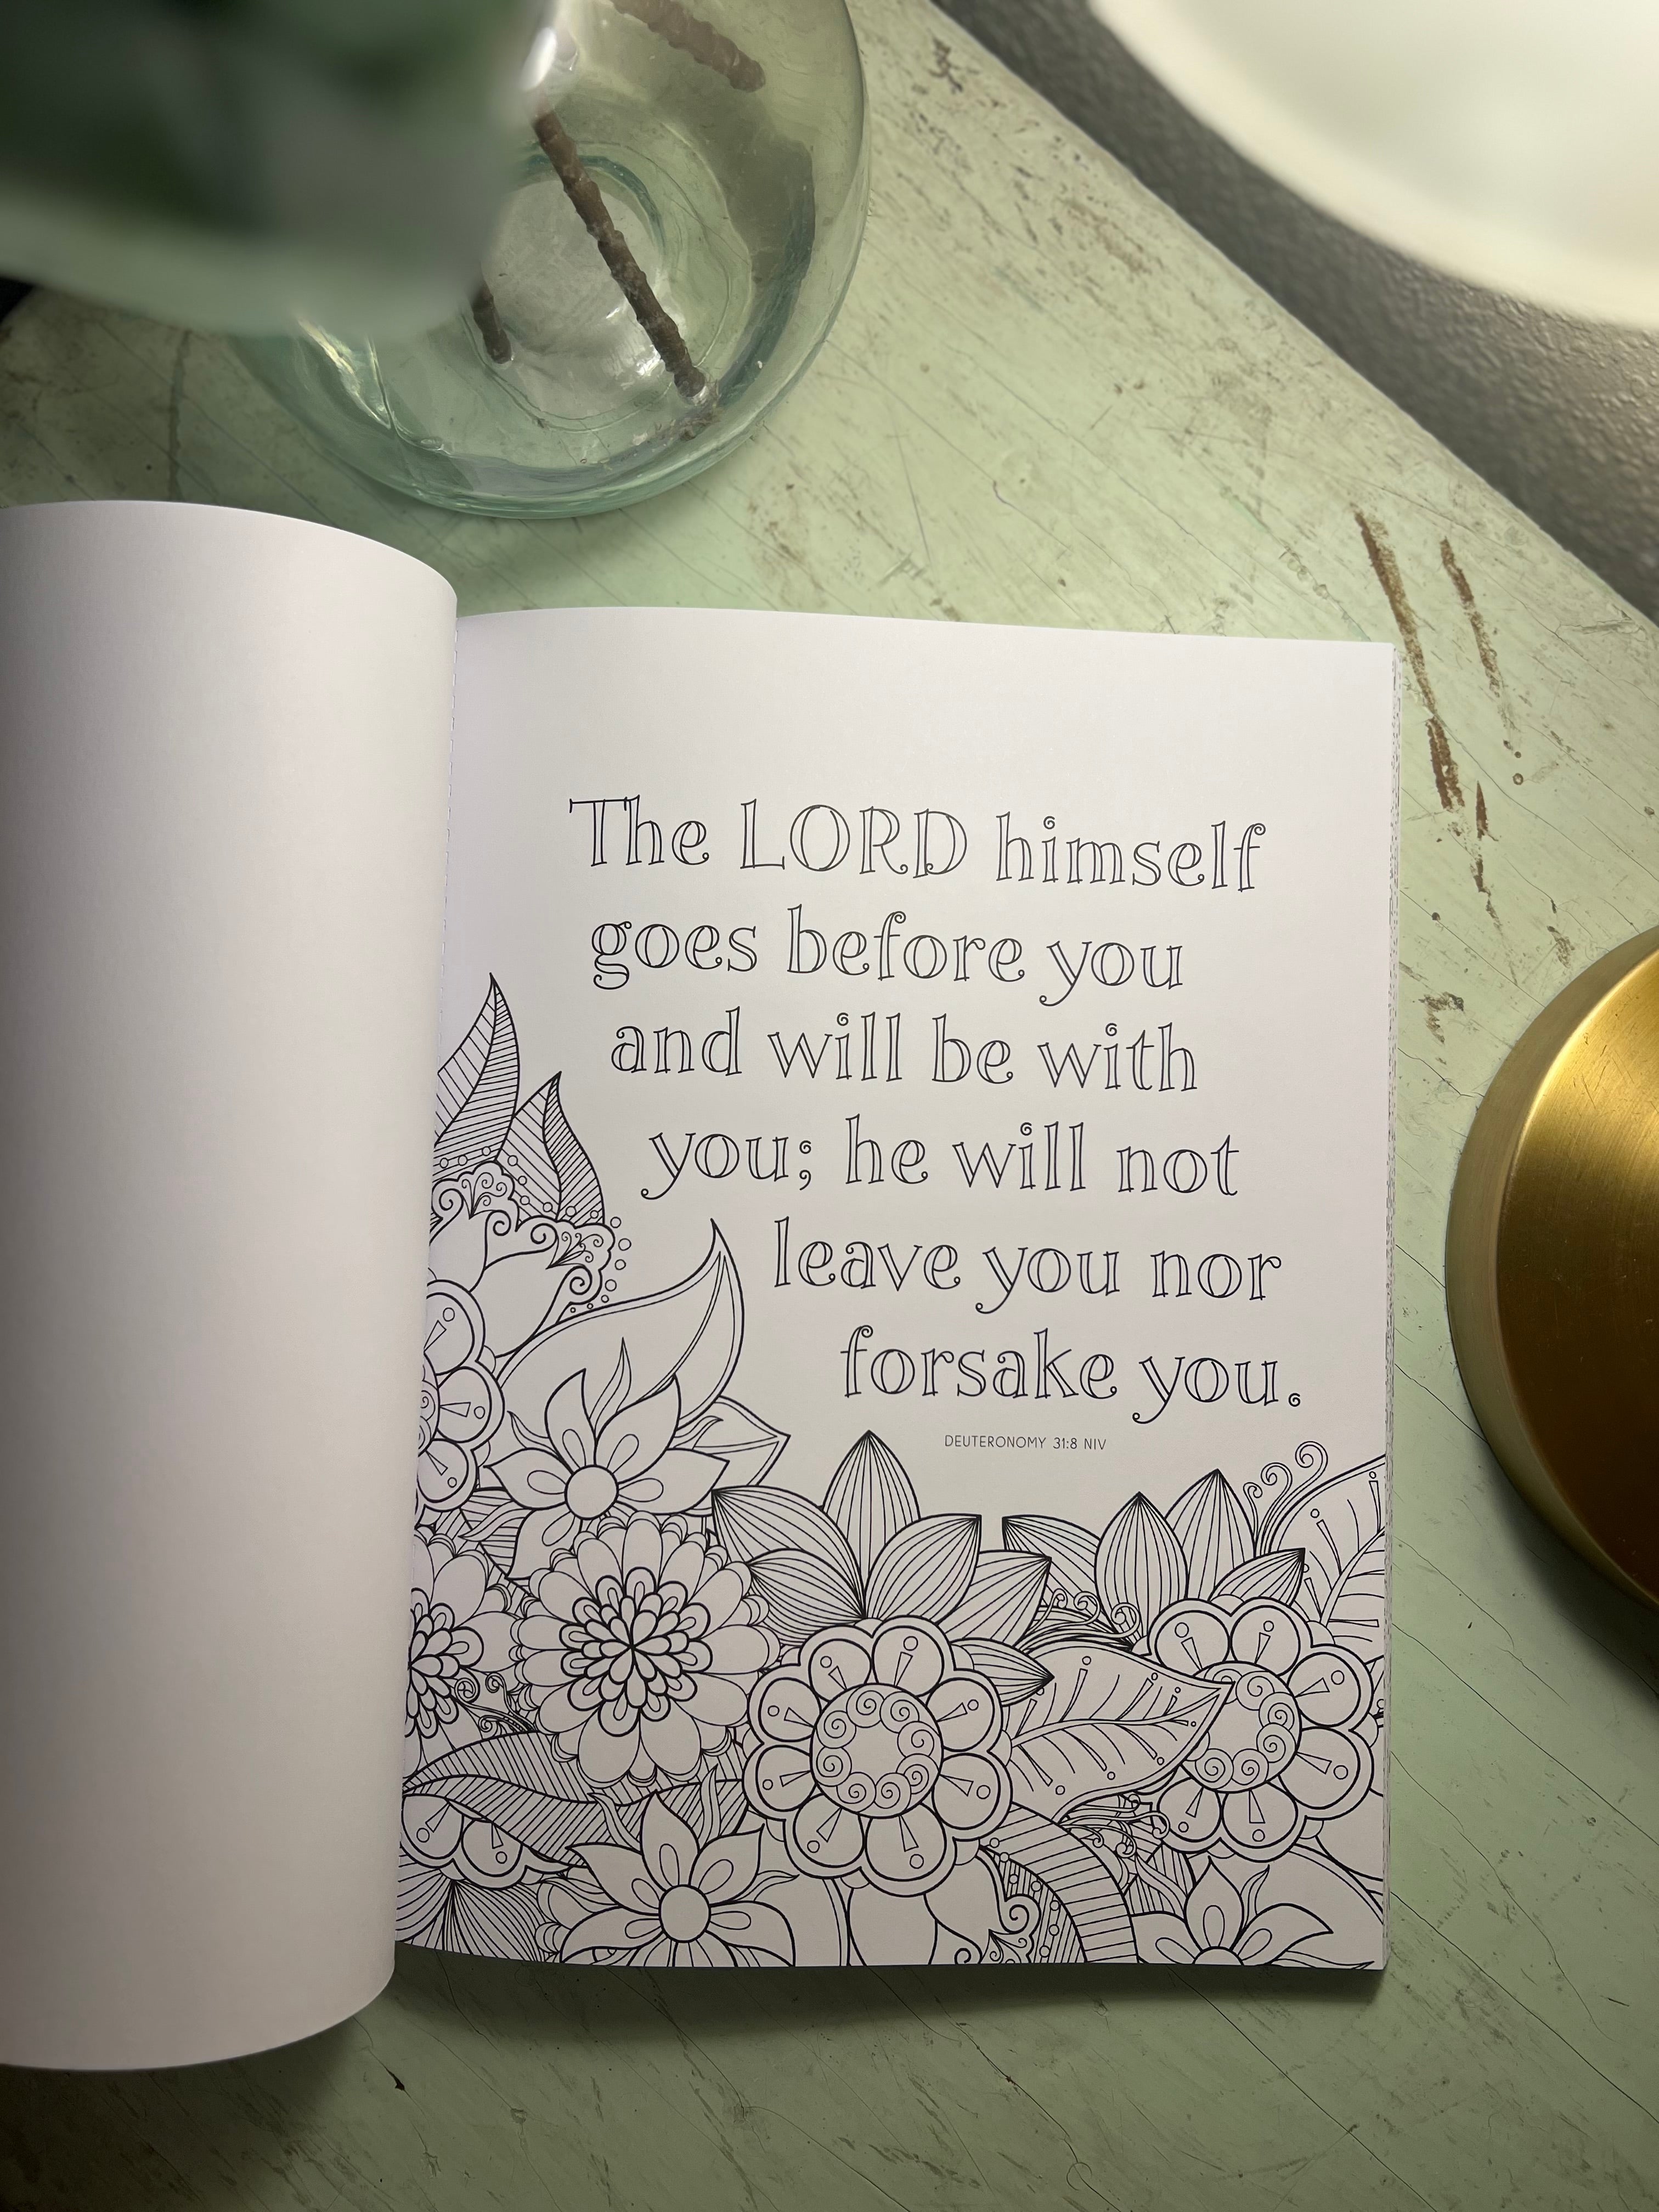 The LORD himself
goes before you
and will be with
you; he will not
leave you nor
forsake you.
DEUTERONOMY 31:8 NIV